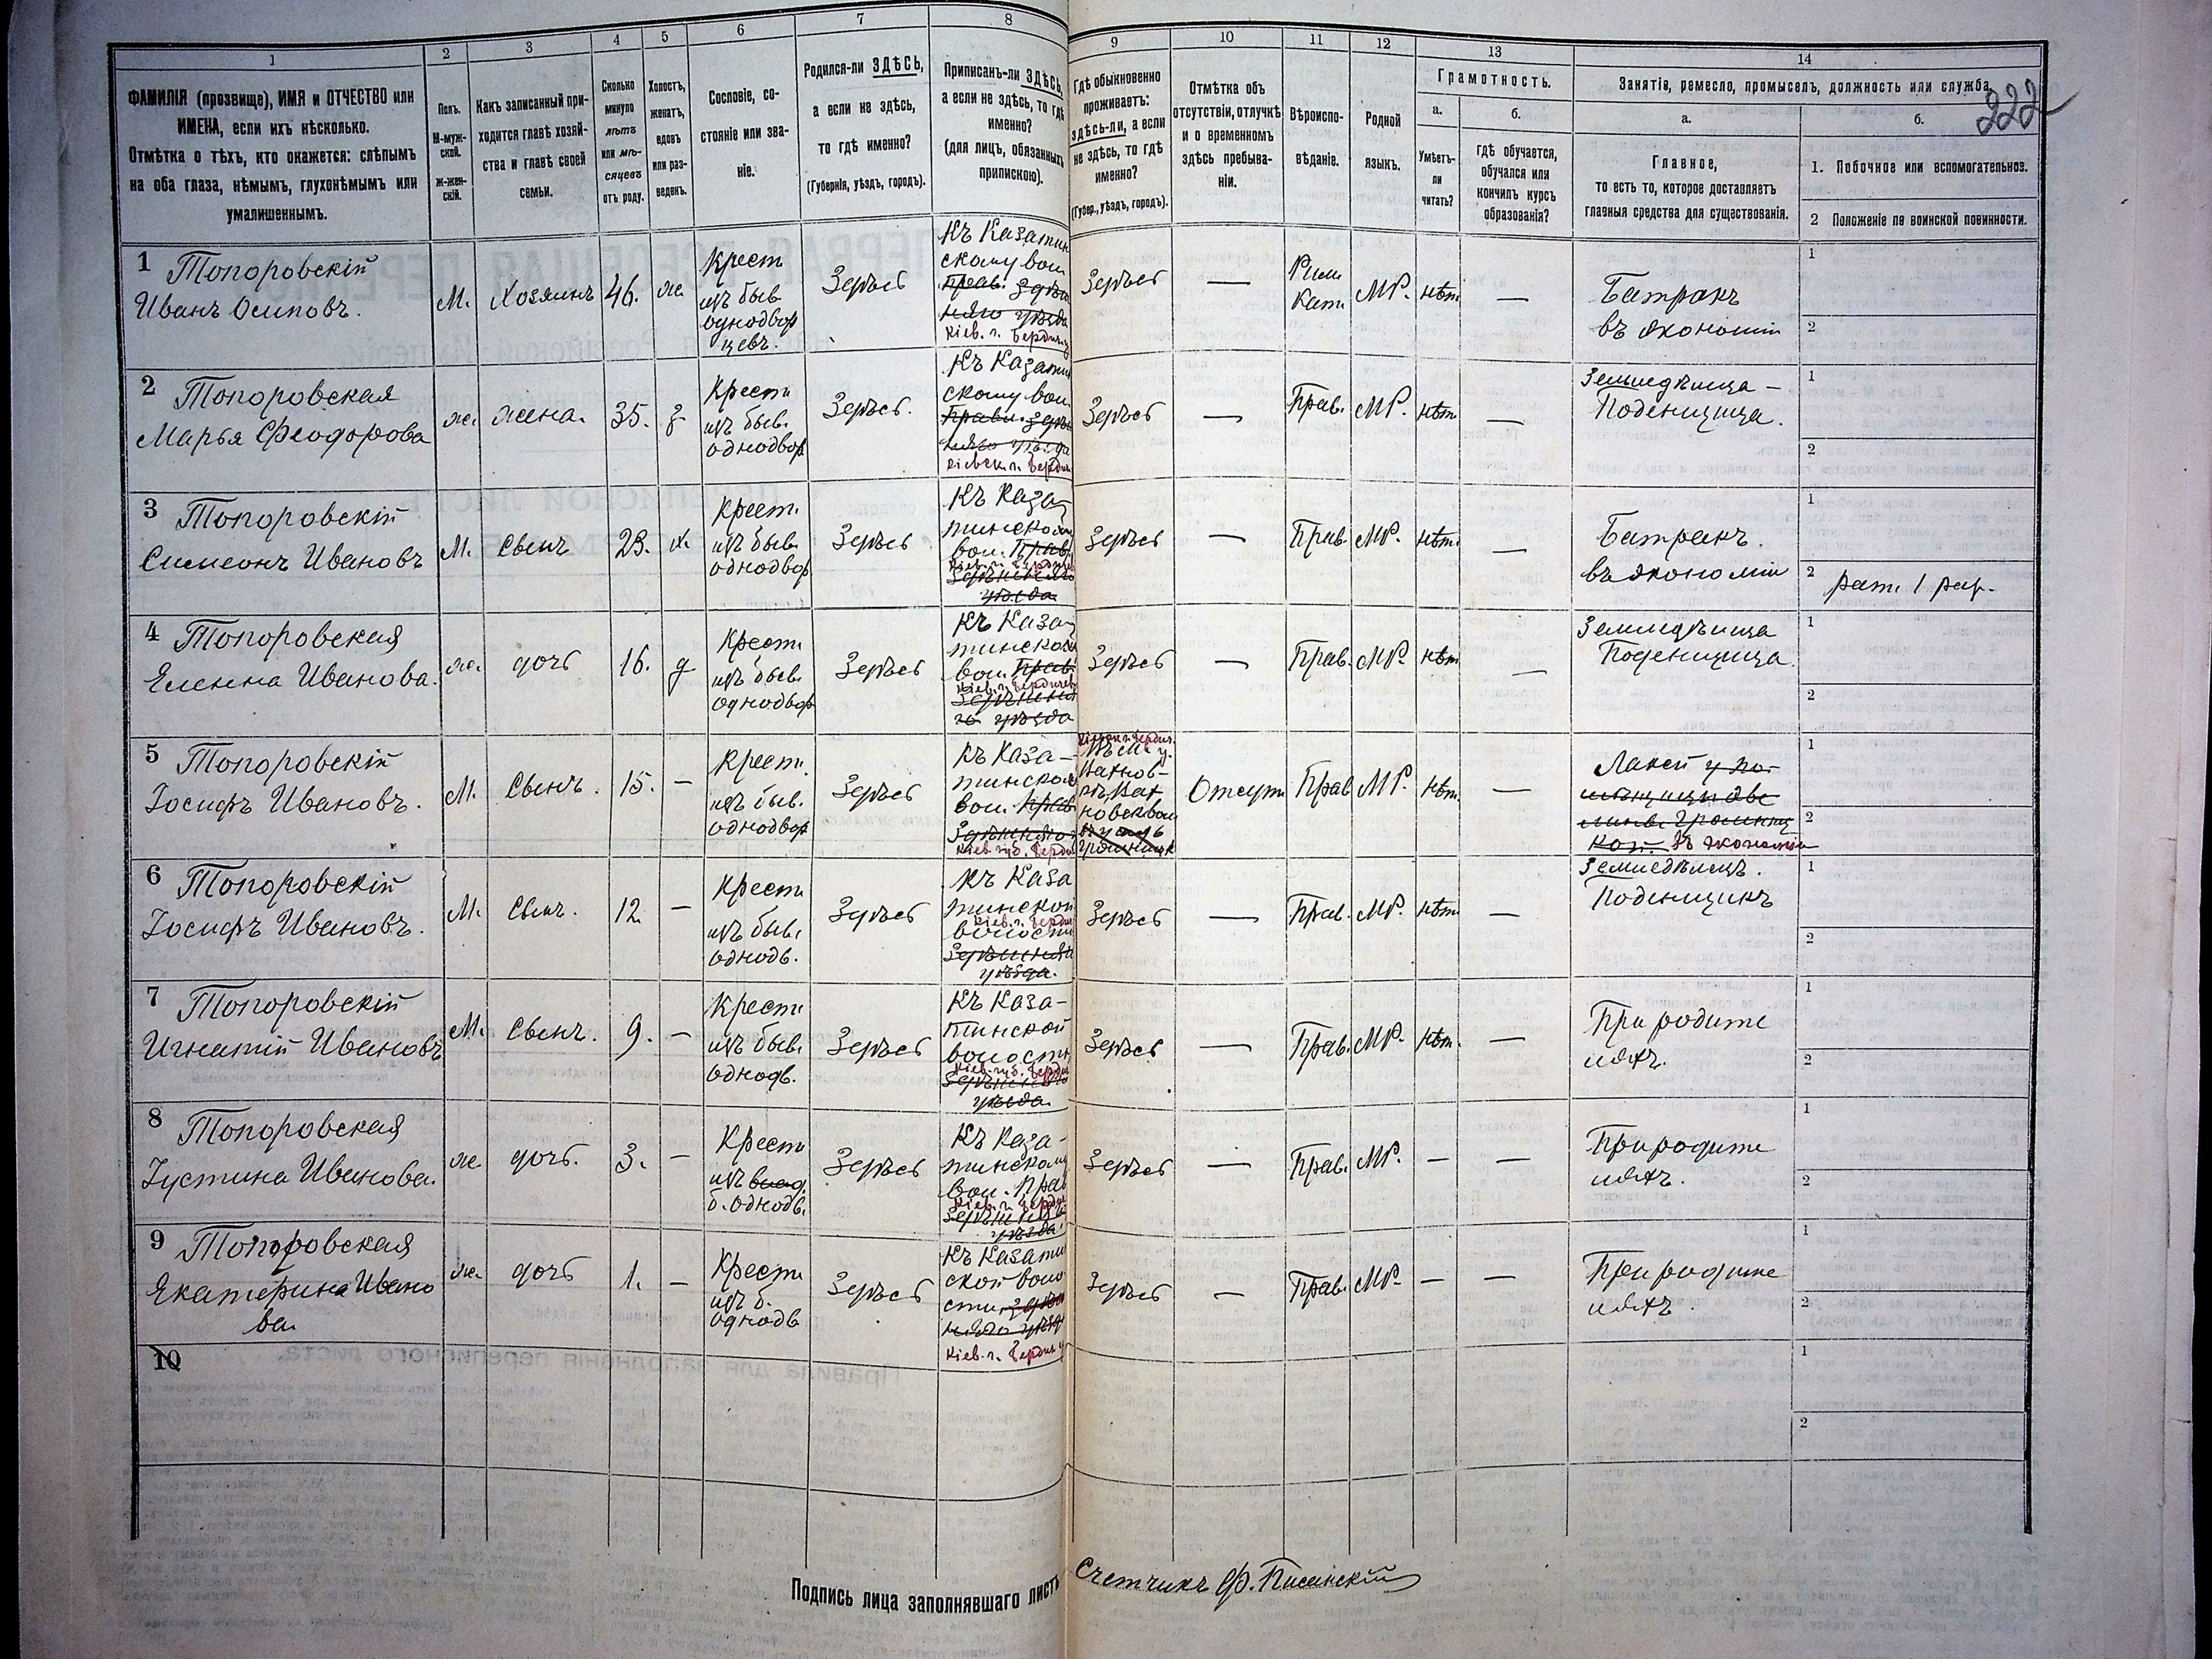 1
2
3
4
5
6
7
8
ФАМИЛІЯ (прозвище), ИМЯ и ОТЧЕСТВО или
ИМЕНА, если ихъ нѣсколько.
Отмѣтка о тѣхъ, кто окажется: слѣпымъ
на оба глаза, нѣмымъ, глухонѣмымъ или
умалишеннымъ.
Полъ.
М-муж-
ской.
Ж-жен-
скій.
Какъ записанный при-
ходится главѣ хозяй-
ства и главѣ своей
семьи.
Сколько
минуло
лѣтъ
или мѣ-
сяцевъ
отъ роду.
Холостъ,
женатъ,
вдовъ
или раз-
веденъ.
Сословіе, со-
стояніе или зва-
ніе.
Родился-ли ЗДѢСЬ,
а если не здѣсь,
то гдѣ именно?
(Губернія, уѣздъ, городъ).
Приписанъ-ли ЗДѢСЬ,
а если не здѣсь, то гдѣ
именно?
(для лицъ, обязанныхъ
припискою).
9
10
11
12
13
14
Гдѣ обыкновенно
проживаетъ:
здѣсь-ли, а если
не здѣсь, то гдѣ
именно?
(Губер., уѣздъ, городъ).
Отмѣтка объ
отсутствіи, отлучкѣ
и о временномъ
здѣсь пребыва-
ніи.
Вѣроиспо-
вѣданіе.
Родной
языкъ.
Грамотность.
а.
Умѣетъ-
ли
читать?
б.
гдѣ обучается,
обучался или
кончилъ курсъ
образованія?
Занятіе, ремесло, промыселъ, должность или служба.
222
а.
Главное,
то есть то, которое доставляетъ
главныя средства для существованія.
б.
1. Побочное или вспомогательное.
2 Положеніе по воинской повинности.
1 Топоровскій
Иванъ Осиповъ.
М.
Хозяинъ
46.
ж.
Крест.
изъ быв
однодвор
цевъ.
Здѣсь
Къ Казатин
скому вол.
прав. здѣш
няго уѣзда
Кіев. г. Бердич. у
Здѣсь
—
Рим.
Кат.
МР.
нѣт
—
Батракъ
въ экономіи
1
2
2 Топоровская
Марья Феодорова
ж.
жена.
35.
з
Крест.
изъ быв.
однодвор
Здѣсь.
Къ Казатин
скому вол.
правл. здѣш
няго уѣзда
Кіевск. г. Бердич
Здѣсь
—
Прав.
МР.
нѣт
—
Земледѣлица -
Поденщица.
1
2
3 Топоровскій
Симеонъ Ивановъ
М.
Сынъ
23.
х.
Крест.
изъ быв.
однодвор
Здѣсь
Къ Каза-
тинскому
вол. Прав.
Кіев. г. Бердичев
Здѣшняго
уѣзда
Здѣсь
—
Прав.
МР.
нѣт.
—
Батракъ.
въ экономіи
1
2 рат. 1 раз.
4 Топоровская
Елена Иванова.
ж.
дочь
16.
д
Крест.
изъ быв.
однодвор
Здѣсь
Къ Каза-
тинскому
вол. Прав.
Кіев. г. Бердичев
Здѣшня
го уѣзда
Здѣсь
—
Прав.
МР.
нѣт
—
Земледѣлица
Поденщица.
1
2
5 Топоровскій
Іосифъ Ивановъ.
М.
Сынъ.
15.
—
Крест.
изъ быв.
однодвор
Здѣсь
Къ Каза-
тинском
вол. прав
Здѣшняго
Кіев. губ. Бердич
Отсут
Прав
МР.
нѣт.
Лакей у по-
мѣщицы
въ экономіи
1
2
6 Топоровскій
Іосифъ Ивановъ.
М.
Сынъ.
12.
—
Крест.
изъ быв.
однодв.
Здѣсь
Къ Каза
тинской
Кіев. г. Бердич
волости
Здѣшняго
уѣзда.
Здѣсь
—
Прав.
МР.
нѣт
—
Земледѣлецъ.
Поденщикъ
1
2
7 Топоровскій
Игнатій Ивановъ
М.
Сынъ.
9.
—
Крест.
изъ быв.
однодв.
Здѣсь
Къ Каза-
тинской
волости
Кіев. губ. Бердич
Здѣшняго
уѣзда.
Здѣсь
—
Прав.
МР.
нѣт.
—
При родите
ляхъ.
1
2
8 Топоровская
Іустина Иванова.
ж
дочь.
3.
—
Крест.
изъ
б. однодв.
Здѣсь
Къ Каза-
тинскому
вол. Прав
Кіев. г. Бердич
Здѣшняго
уѣзда.
Здѣсь
—
Прав.
МР.
—
—
При родите
ляхъ.
1
2
9 Топоровская
Екатерина Ивано
ва.
ж.
дочь
1.
—
Крест.
изъ б.
однодв
Здѣсь
Къ Казатин
ской воло
сти здѣш
няго уѣзда
Кіев. г. Бердич. у
Здѣсь
—
Прав.
МР.
—
—
При родите
ляхъ.
1
2
10
1
2
Подпись лица заполнявшаго листъ
Счетчикъ Ф. Писинскій